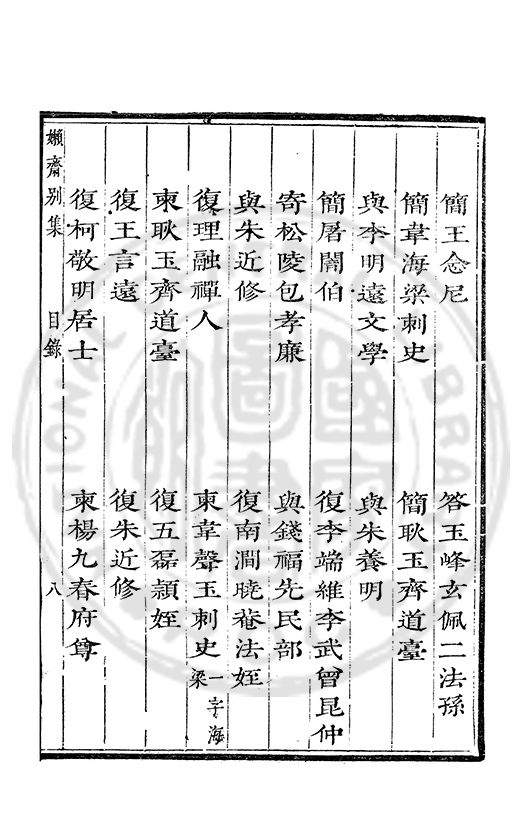 簡王念尼　答玉峰玄佩二法孫
簡韋海梁刺史　簡耿玉齊道臺
與李明遠文學　與朱養明
簡屠闇伯　復李端維李武曾昆仲
寄松陵包孝廉　與錢福先民部
與朱近修　復南澗曉菴法姪
復理融禪人　柬韋聲玉刺史一字海梁
柬耿玉齊道臺　復五磊顓姪
復王言遠　復朱近修
復柯敬明居士　柬楊九春府尊
嬾齋别集　目錄　八